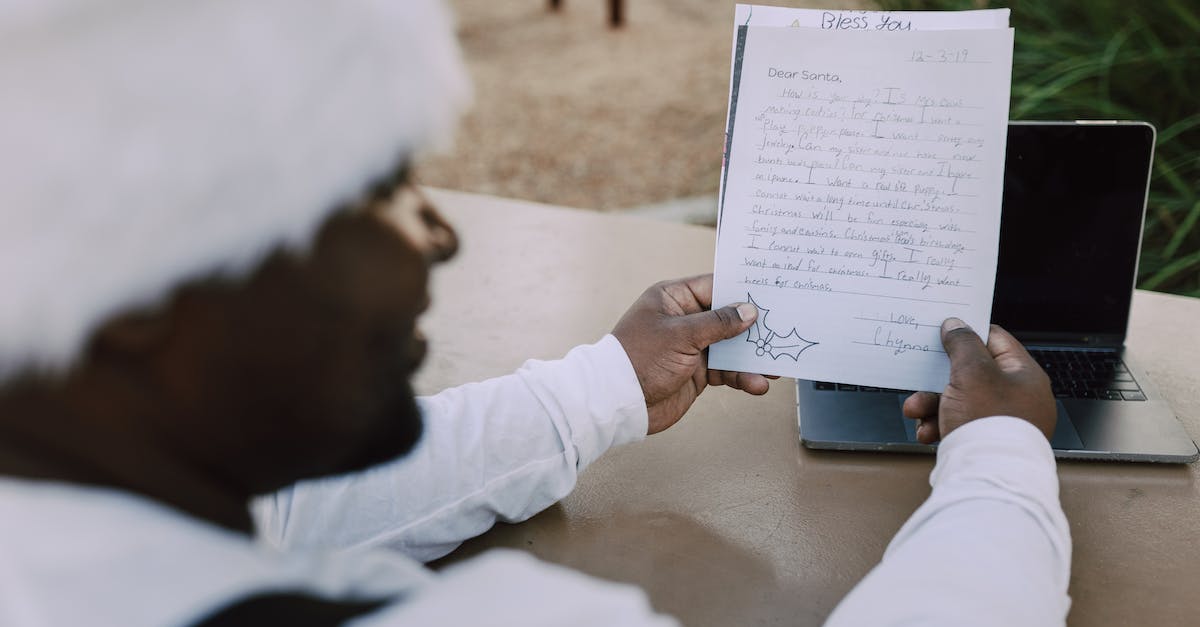 Bless you
12-3-19
Dear Santa,
How is you day? Is Mrs
making cookies? For christmas I want a
Play puppy please. I want
jewlry. Can my sister and me have
beds please? Can my sister and I have
an iphone. I want a real life puppy. I
cannot wait a long time until Christmas.
Christmas will be fun especiay with
family and cousins. Christmas is
I cannot wait to open gifts. I really
want an for christmas. I really want
heels for chrismas.
Love,
Chynna